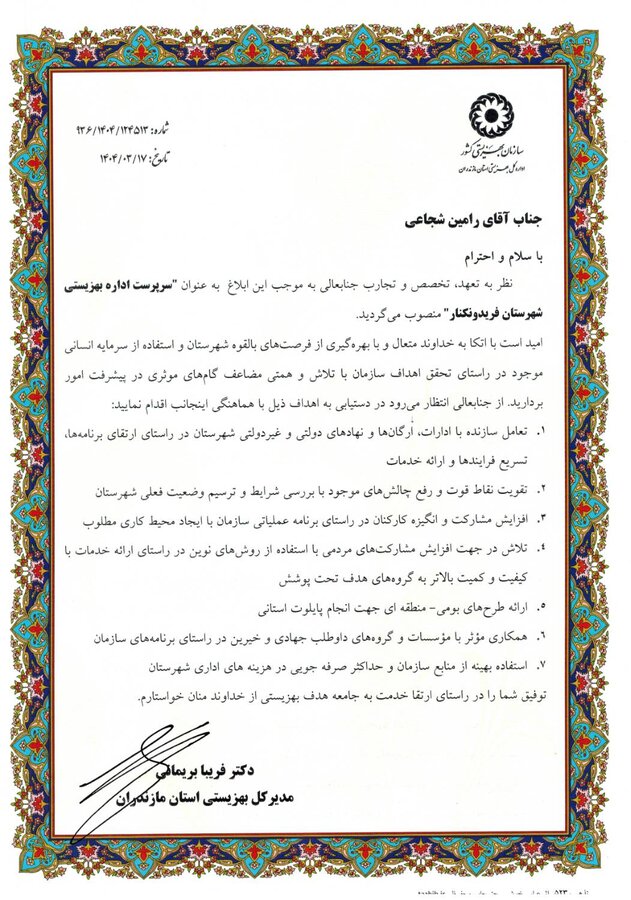 سازمان بهزیستی کشور
اداره کل بهزیستی استان مازندران
شماره: ۹۳۶/۱۴۰۴/۱۲۴۵۱۳
تاریخ: ۱۴۰۴/۰۳/۱۷
جناب آقای رامین شجاعی
با سلام و احترام
نظر به تعهد، تخصص و تجارب جنابعالی به موجب این ابلاغ به عنوان "سرپرست اداره بهزیستی
شهرستان فریدونکنار" منصوب می‌گردید.
امید است با اتکا به خداوند متعال و با بهره‌گیری از فرصت‌های بالقوه شهرستان و استفاده از سرمایه انسانی
موجود در راستای تحقق اهداف سازمان با تلاش و همتی مضاعف گام‌های موثری در پیشرفت امور
بردارید. از جنابعالی انتظار می‌رود در دستیابی به اهداف ذیل با هماهنگی اینجانب اقدام نمایید:
۱. تعامل سازنده با ادارات، اُرگان‌ها و نهادهای دولتی و غیردولتی شهرستان در راستای ارتقای برنامه‌ها،
تسریع فرایندها و ارائه خدمات
۲. تقویت نقاط قوت و رفع چالش‌های موجود با بررسی شرایط و ترسیم وضعیت فعلی شهرستان
۳. افزایش مشارکت و انگیزه کارکنان در راستای برنامه عملیاتی سازمان با ایجاد محیط کاری مطلوب
۴. تلاش در جهت افزایش مشارکت‌های مردمی با استفاده از روش‌های نوین در راستای ارائه خدمات با
کیفیت و کمیت بالاتر به گروه‌های هدف تحت پوشش
۵. ارائه طرح‌های بومی- منطقه ای جهت انجام پایلوت استانی
۶. همکاری مؤثر با مؤسسات و گروه‌های داوطلب جهادی و خیرین در راستای برنامه‌های سازمان
۷. استفاده بهینه از منابع سازمان و حداکثر صرفه جویی در هزینه های اداری شهرستان
توفیق شما را در راستای ارتقا خدمت به جامعه هدف بهزیستی از خداوند منان خواستارم.
دکتر فریبا بریمانی
مدیرکل بهزیستی استان مازندران